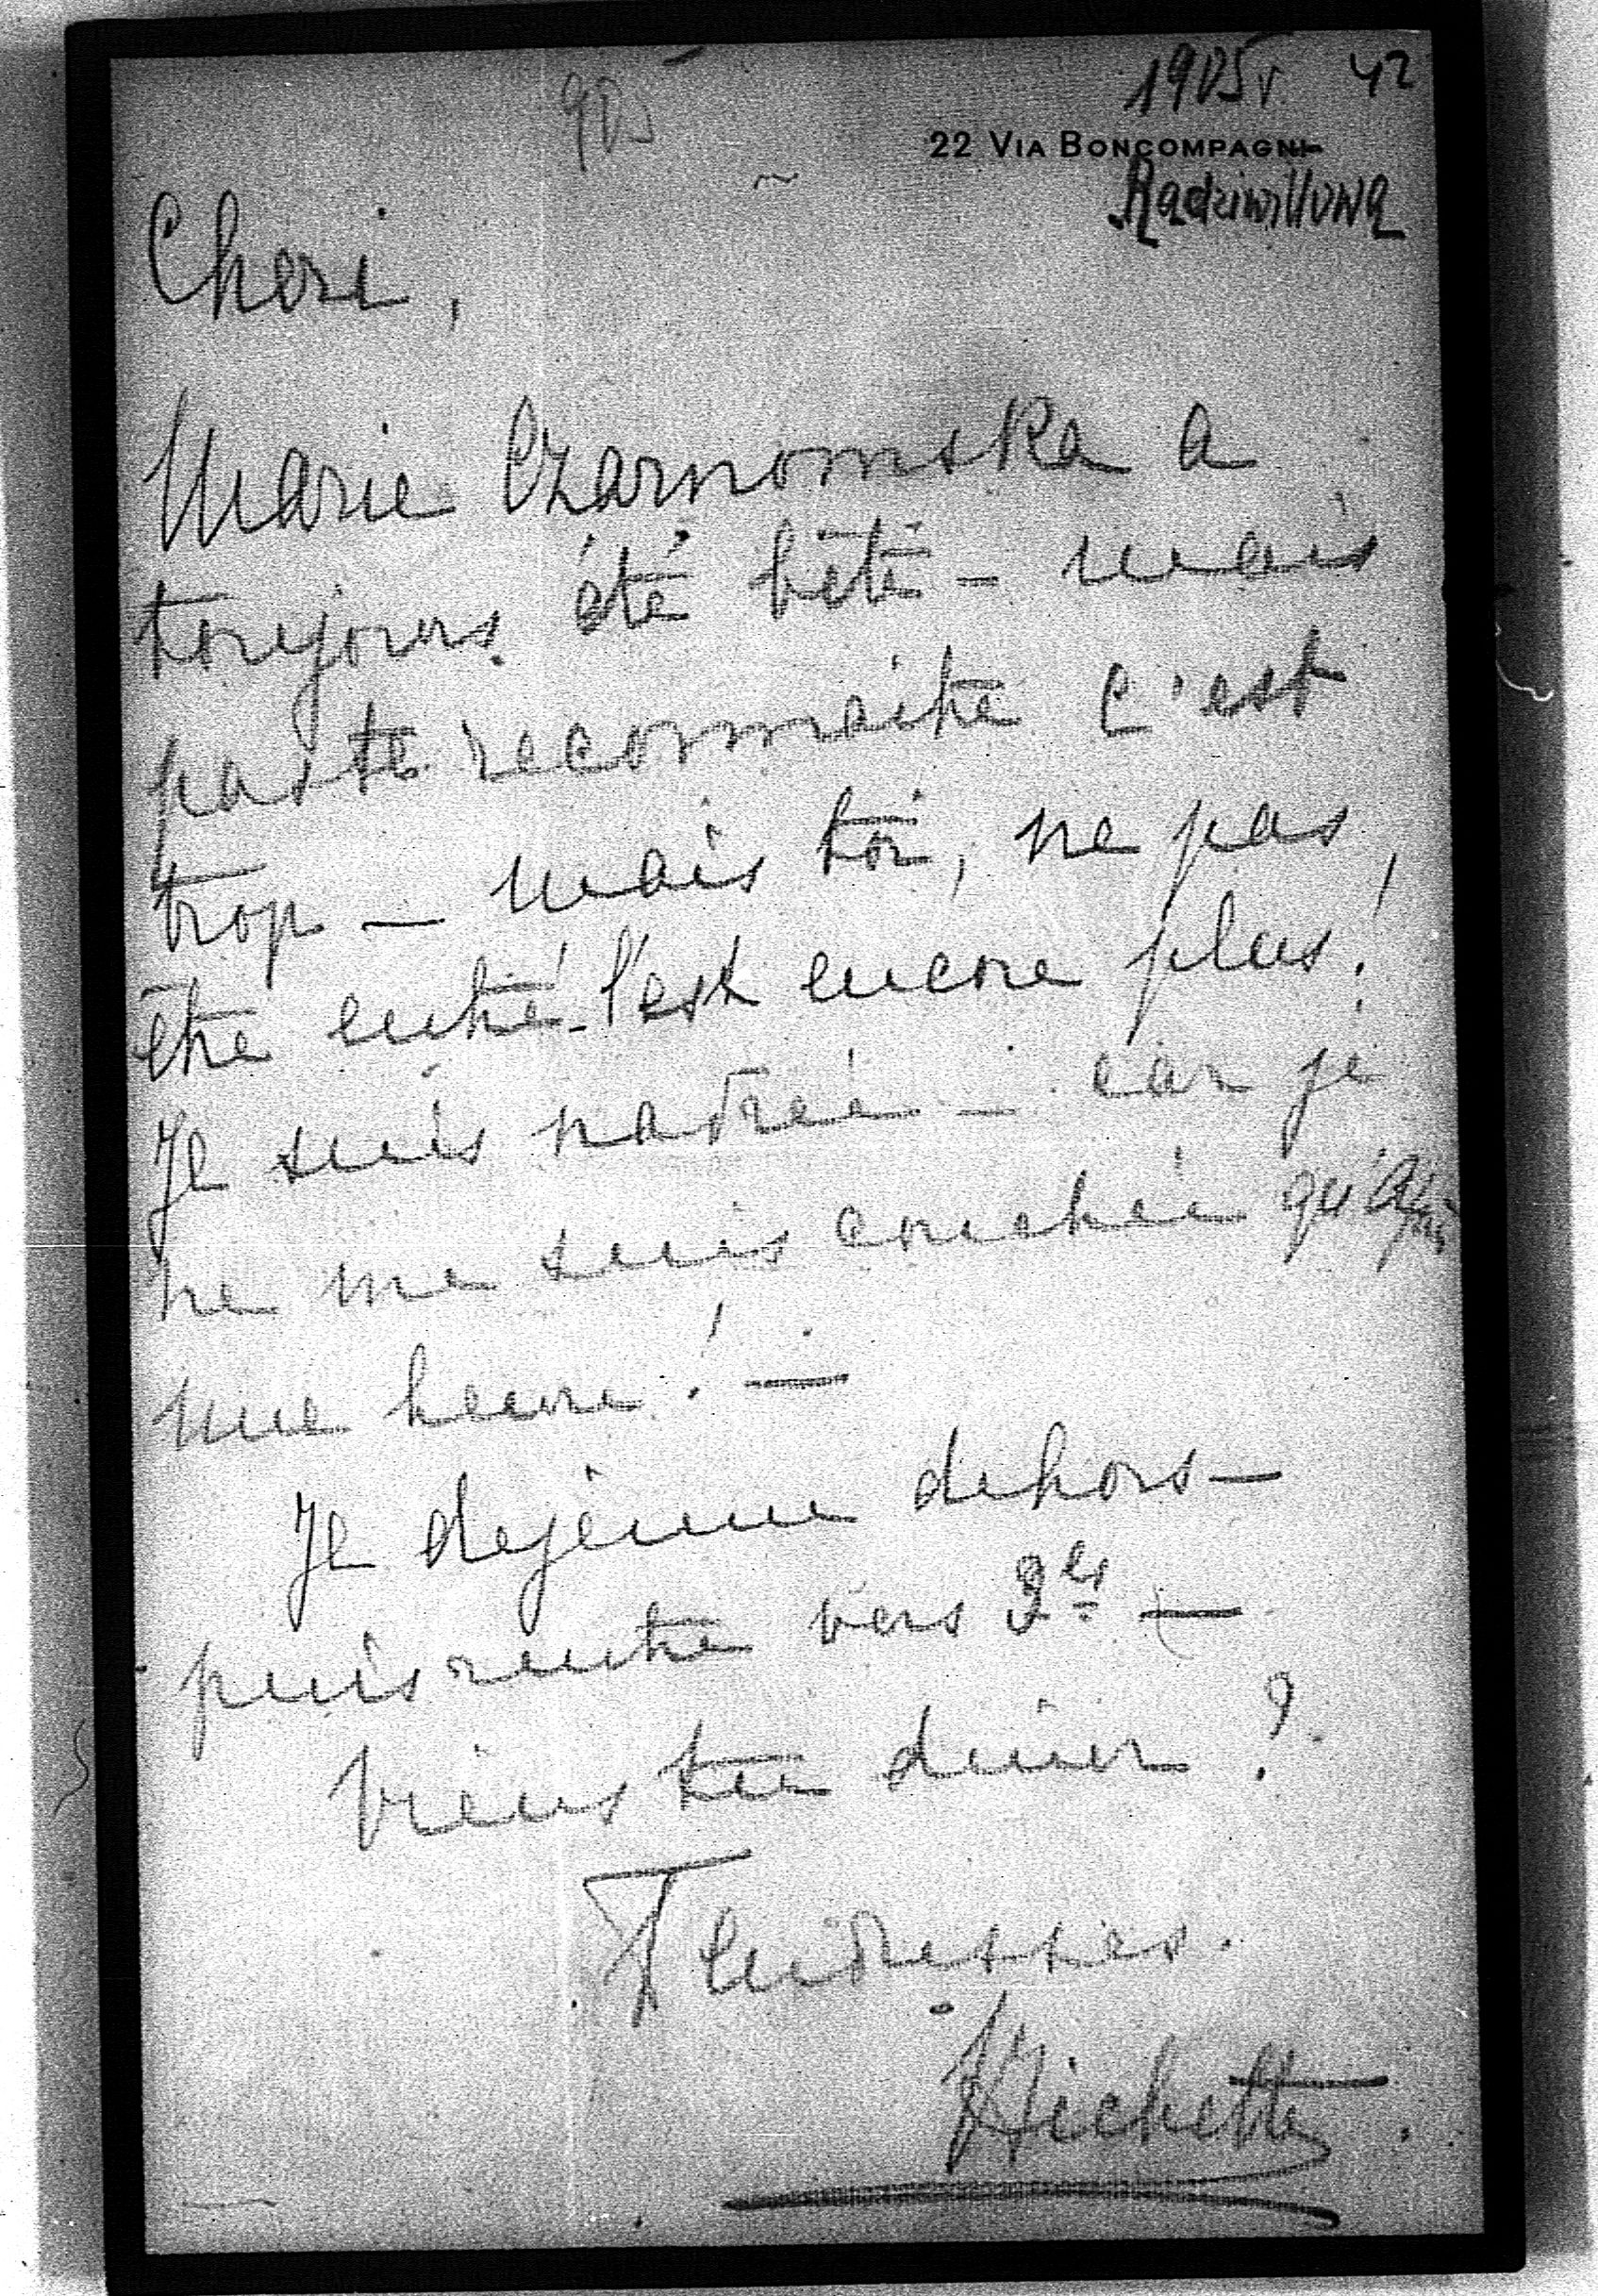 905
1905 r. 42
22 VIA BONCOMPAGNI
Radziwiłłowa
Cheri,
Marie Czarnomska a
toujours été bête – mais
pas te reconnaitre c'est
trop – mais toi, ne pas
être entré – c'est encore plus!
Je suis navrée – car je
ne me suis couchée qu'après
une heure! –
Je dejeune dehors –
puis rentre vers 3 es –
Viens tu diner?
Tendresses.
Bichette